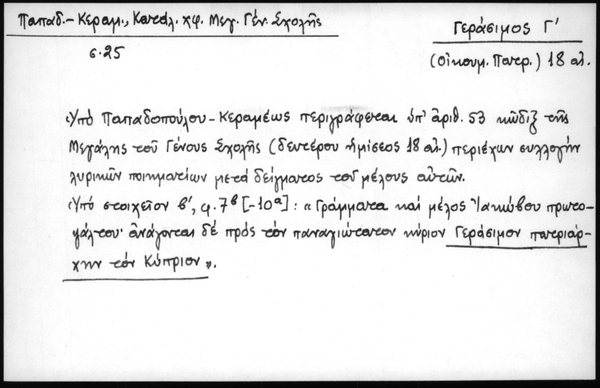 Παπαδ.-Κεραμ., Καταλ. χφ. Μεγ. Γέν. Σχολῆς
Γεράσιμος Γ'
σ. 25
(Οἰκουμ. Πατρ.) 18 αἰ.
Ὑπό Παπαδοπούλου-Κεραμέως περιγράφεται ὑπ' ἀριθ. 53 κῶδιξ τῆς
Μεγάλης τοῦ Γένους Σχολῆς (δευτέρου ἡμίσεος 18 αἰ.) περιέχων συλλογήν
λυρικῶν ποιηματίων μετά δείγματος τοῦ μέλους αὐτῶν.
Ὑπό στοιχεῖον β', φ. 7β [-10α] : «Γράμματα καί μέλος Ἰακώβου πρωτο-
ψάλτου· ἀνάγονται δέ πρός τόν παναγιώτατον κύριον Γεράσιμον πατριάρ-
χην τόν Κύπριον».